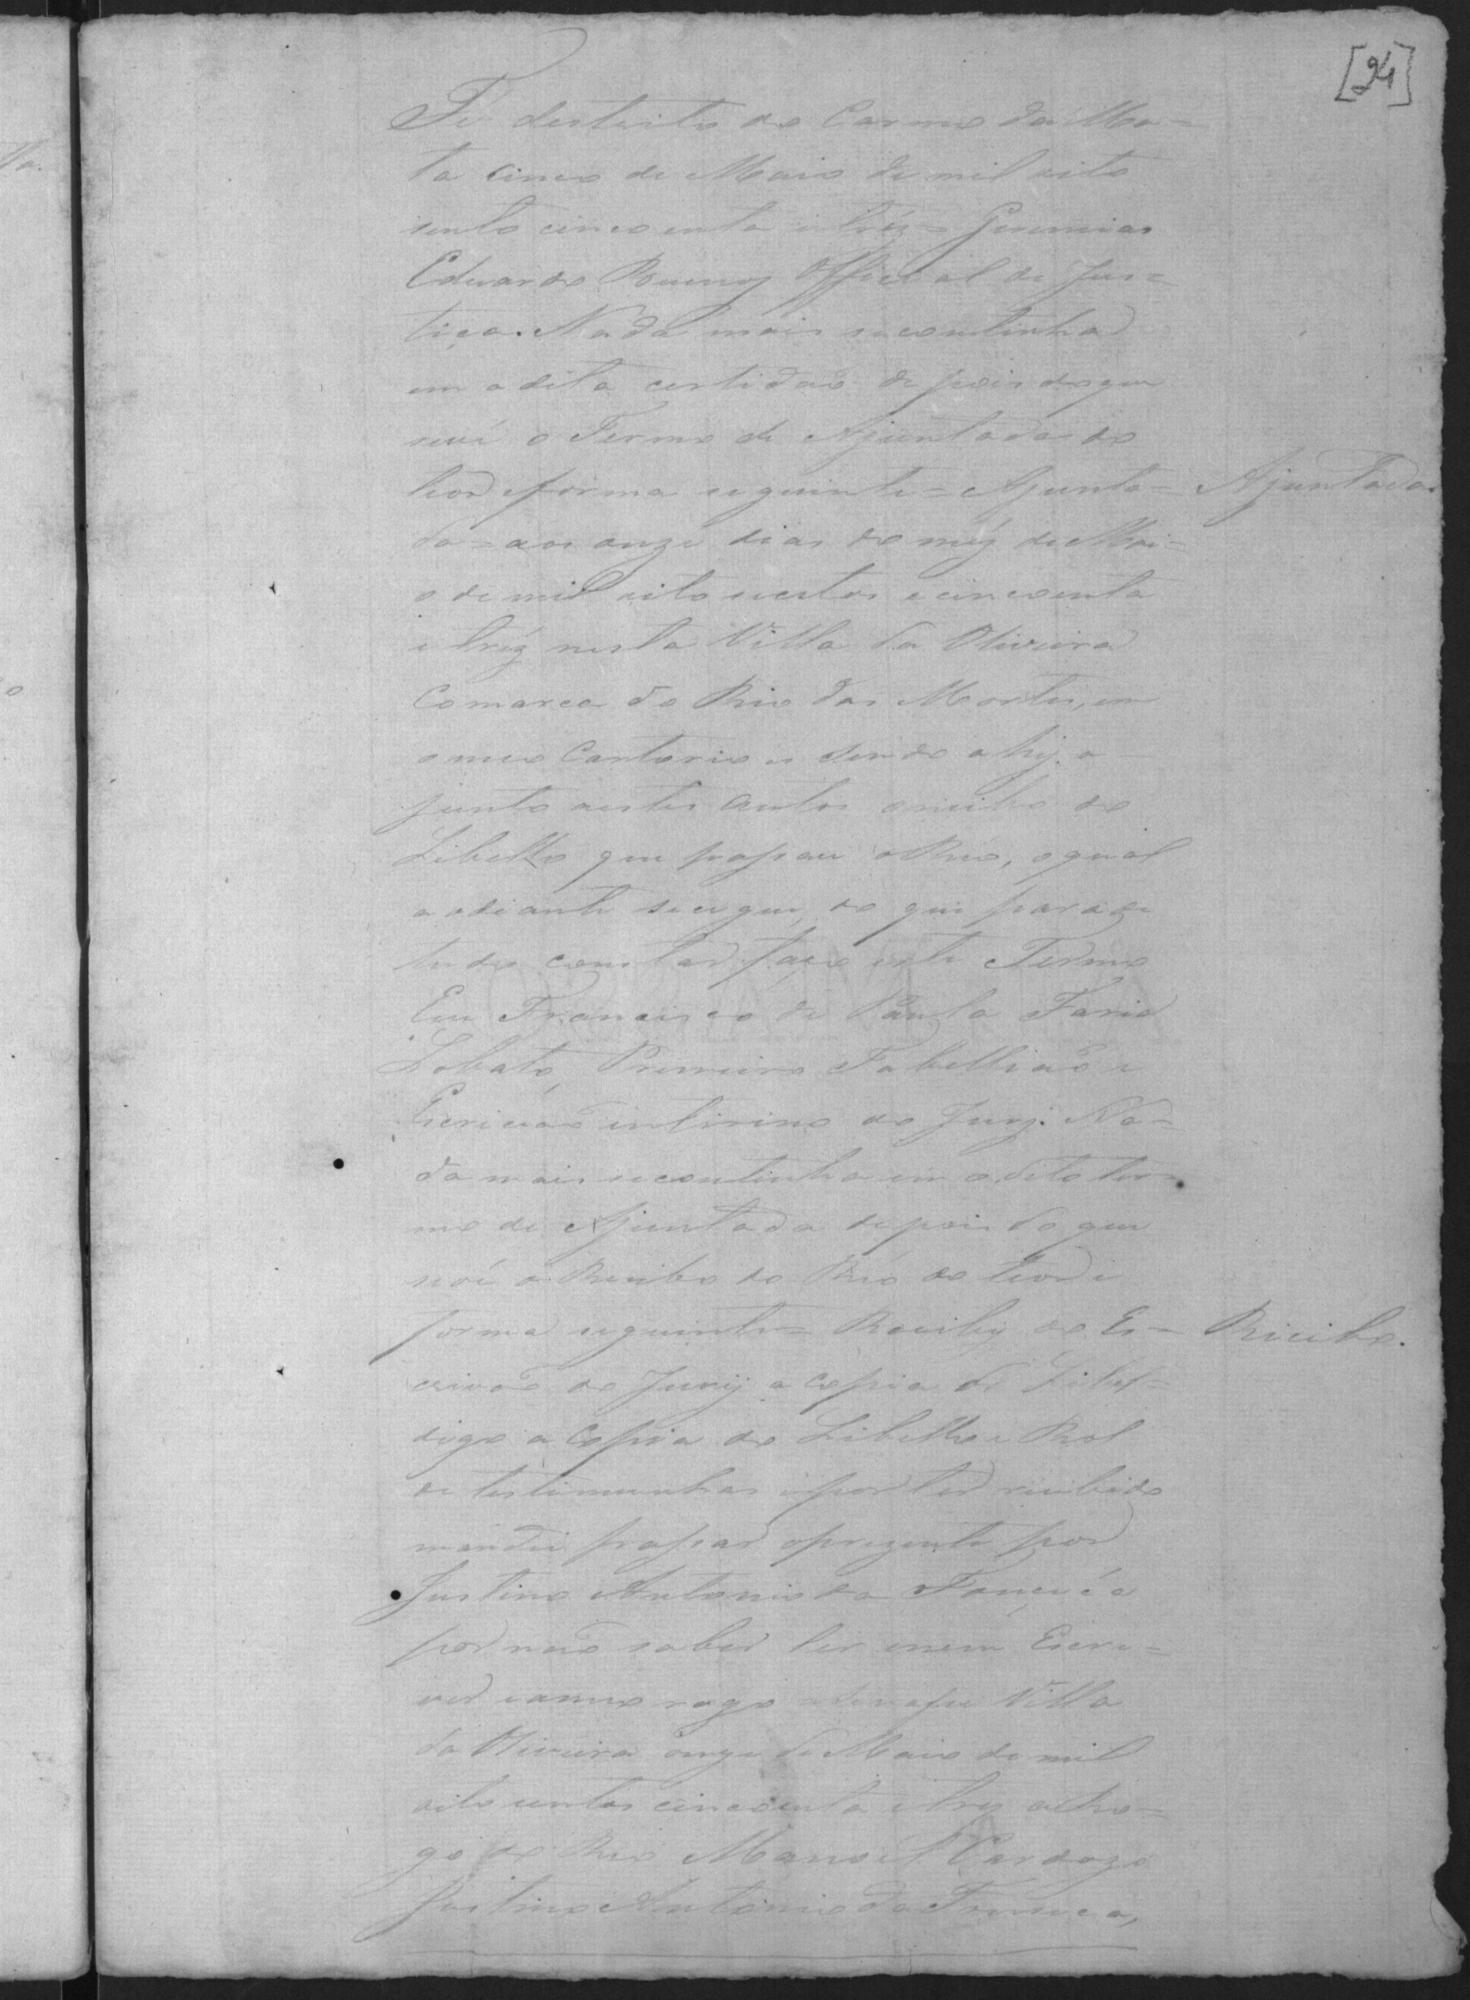 [24]
Fé destrito do Carmo da Ma=
ta cinco de Maio de mil oito
sento cincoenta e tréz = Jeremias
Eduardo Bueno Official de Jus=
tiça. Nada mais se continha
em a dita certidaõ depois do que
se vê o Termo de Ajuntada do
teor e forma seguinte = Ajunta=
Ajuntada.
da = aos onze dias do mez de Mai=
o de mil oito centos e cincoenta
e trez nesta Villa da Oliveira
Comarca do Rio das Mortes, em
o meu Cartorio e sendo ahy a
junto a estes autos o recibo do
Libello que passou o Reo, o qual
a adiante se segue, do que para de
tudo constar faço este Termo
Eu Francisco de Paula Faria
Lobato, Primeiro Tabelliaõ e
Escrivaõ intirino do Jury. Na=
da mais se continha em o dito ter=
mo de Ajuntada depois do que
se vê o Recibo do Réo do teor e
forma seguinte = Recibÿ do Es=
Recibo.
crivaõ do Jurÿ a copia do Libel=
digo a Copia do Libello e Rol
de testimunhas e por ter recibido
mandei passar o prezente por
Justino Antonio da Fonceca
por naõ saber ler e nem Escre=
ver e a meu rogo asina Villa
da Oliveira onze de Maio de mil
oito centos cincoenta e trez a Ro=
go do Reo Manoel Cardozo
Justino Antonio da Fonceca,